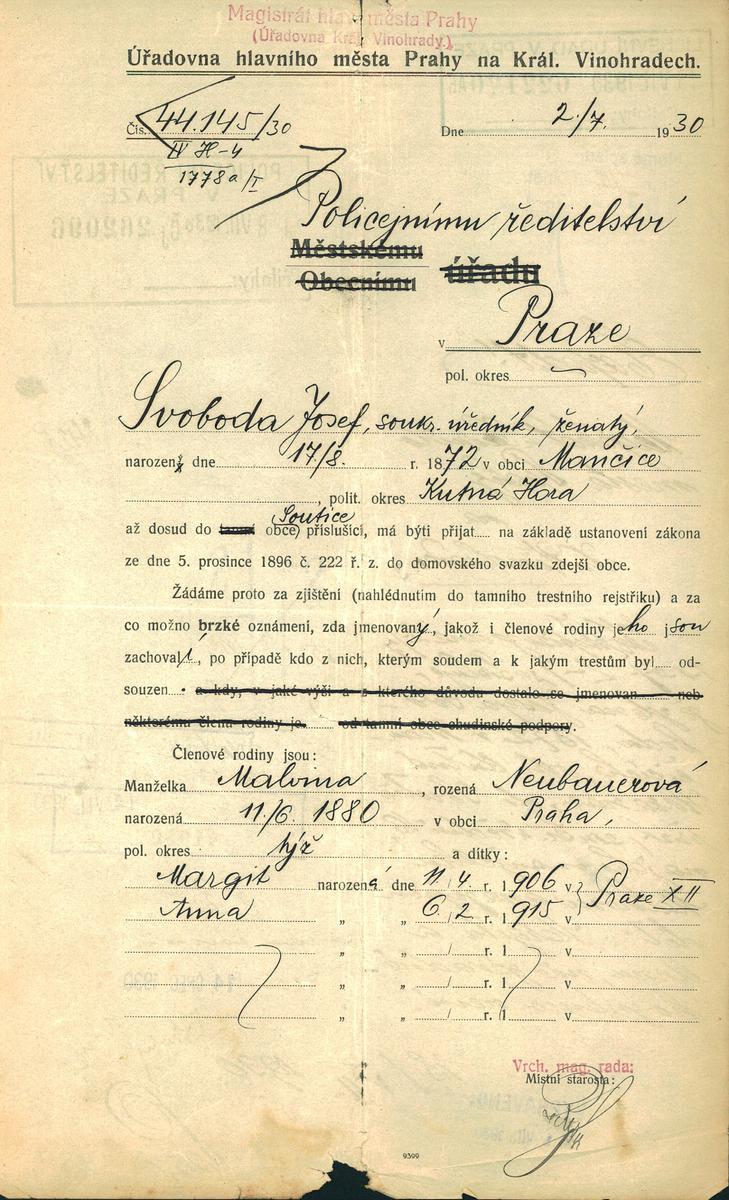 Magistrát hlav. města Prahy
(Úřadovna Král. Vinohrady.)
Úřadovna hlavního města Prahy na Král. Vinohradech.
Čís. 44.145/30
IV H-4
1778a/I
Dne 2./7. 1930
Policejnímu ředitelství
Městskému
Obecnímu úřadu
v Praze
pol. okres
Svoboda Josef, soukr. úředník, ženatý,
narozený dne 17/8. r. 1872 v obci Mančice
, polit. okres Kutná Hora
Soutice
až dosud do tamní obce) příslušící, má býti přijat.... na základě ustanovení zákona
ze dne 5. prosince 1896 č. 222 ř. z. do domovského svazku zdejší obce.
Žádáme proto za zjištění (nahlédnutím do tamního trestního rejstříku) a za
co možno brzké oznámení, zda jmenovaný, jakož i členové rodiny jeho jsou
zachovalí, po případě kdo z nich, kterým soudem a k jakým trestům byl.... od-
souzen.... a kdy, v jaké výši a z kterého důvodu dostalo se jmenovan.... neb
některému členu rodiny je.... od tamní obce chudinské podpory.
Členové rodiny jsou:
Manželka Malvina, rozená Neubauerová
narozená 11/6. 1880 v obci Praha,
pol. okres týž a dítky:
Margit narozená dne 11./4. r. 1906 v } Praze XII
Anna „ „ 6./2. r. 1915 v
„ „ / r. 1 v
„ „ / r. 1 v
„ „ / r. 1 v
Vrch. mag. rada:
Místní starosta:
9399